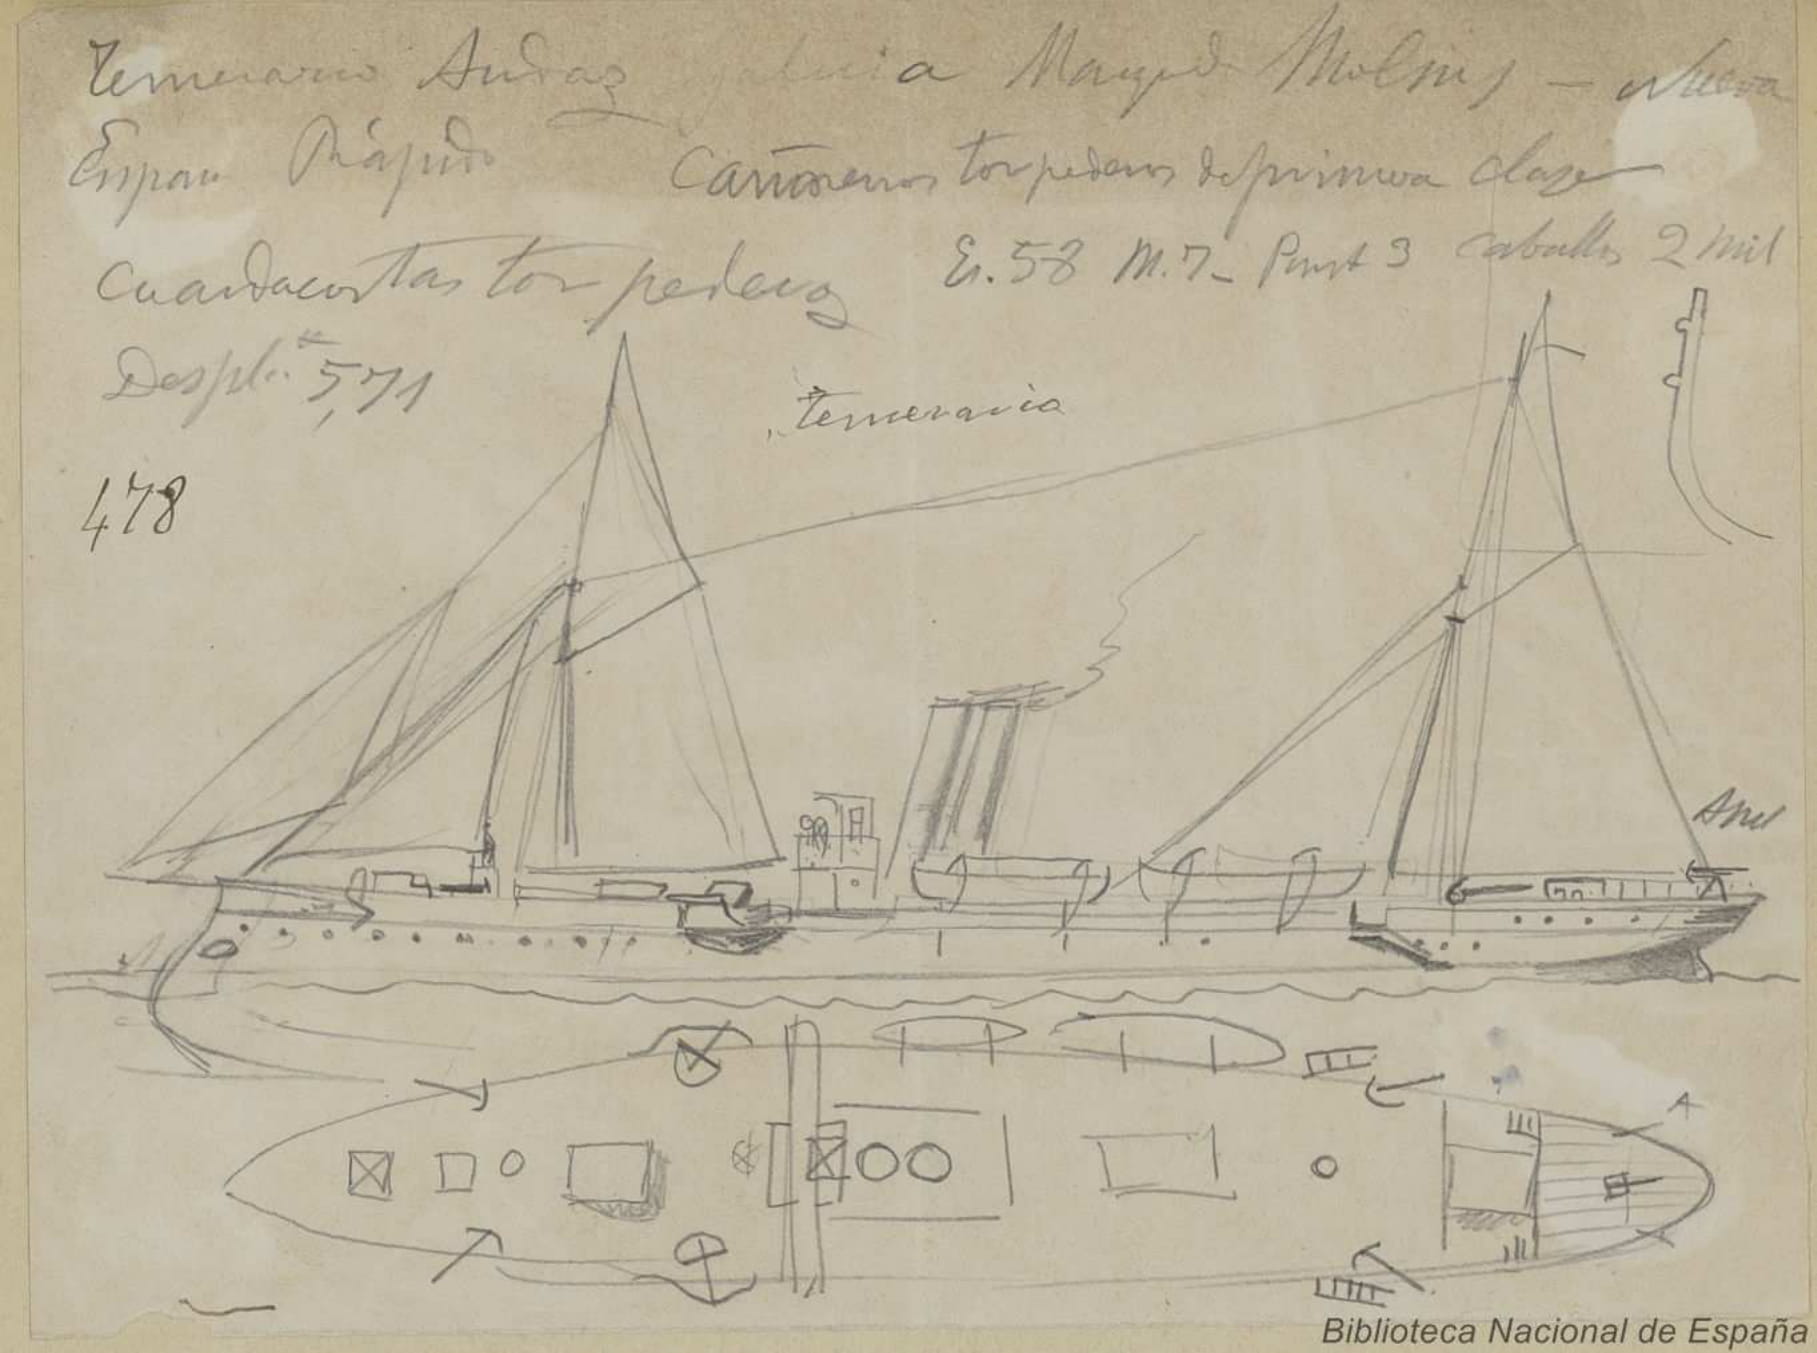 Temerario Audaz galicia Marqués Molins — Nueva
España Rápido Cañoneros torpederos de primera clase
Guardacostas torpederos E. 58 M. 7 - Punt 3 caballos 2 mil
Despl.to 5,71
temerario
478
A
Biblioteca Nacional de España